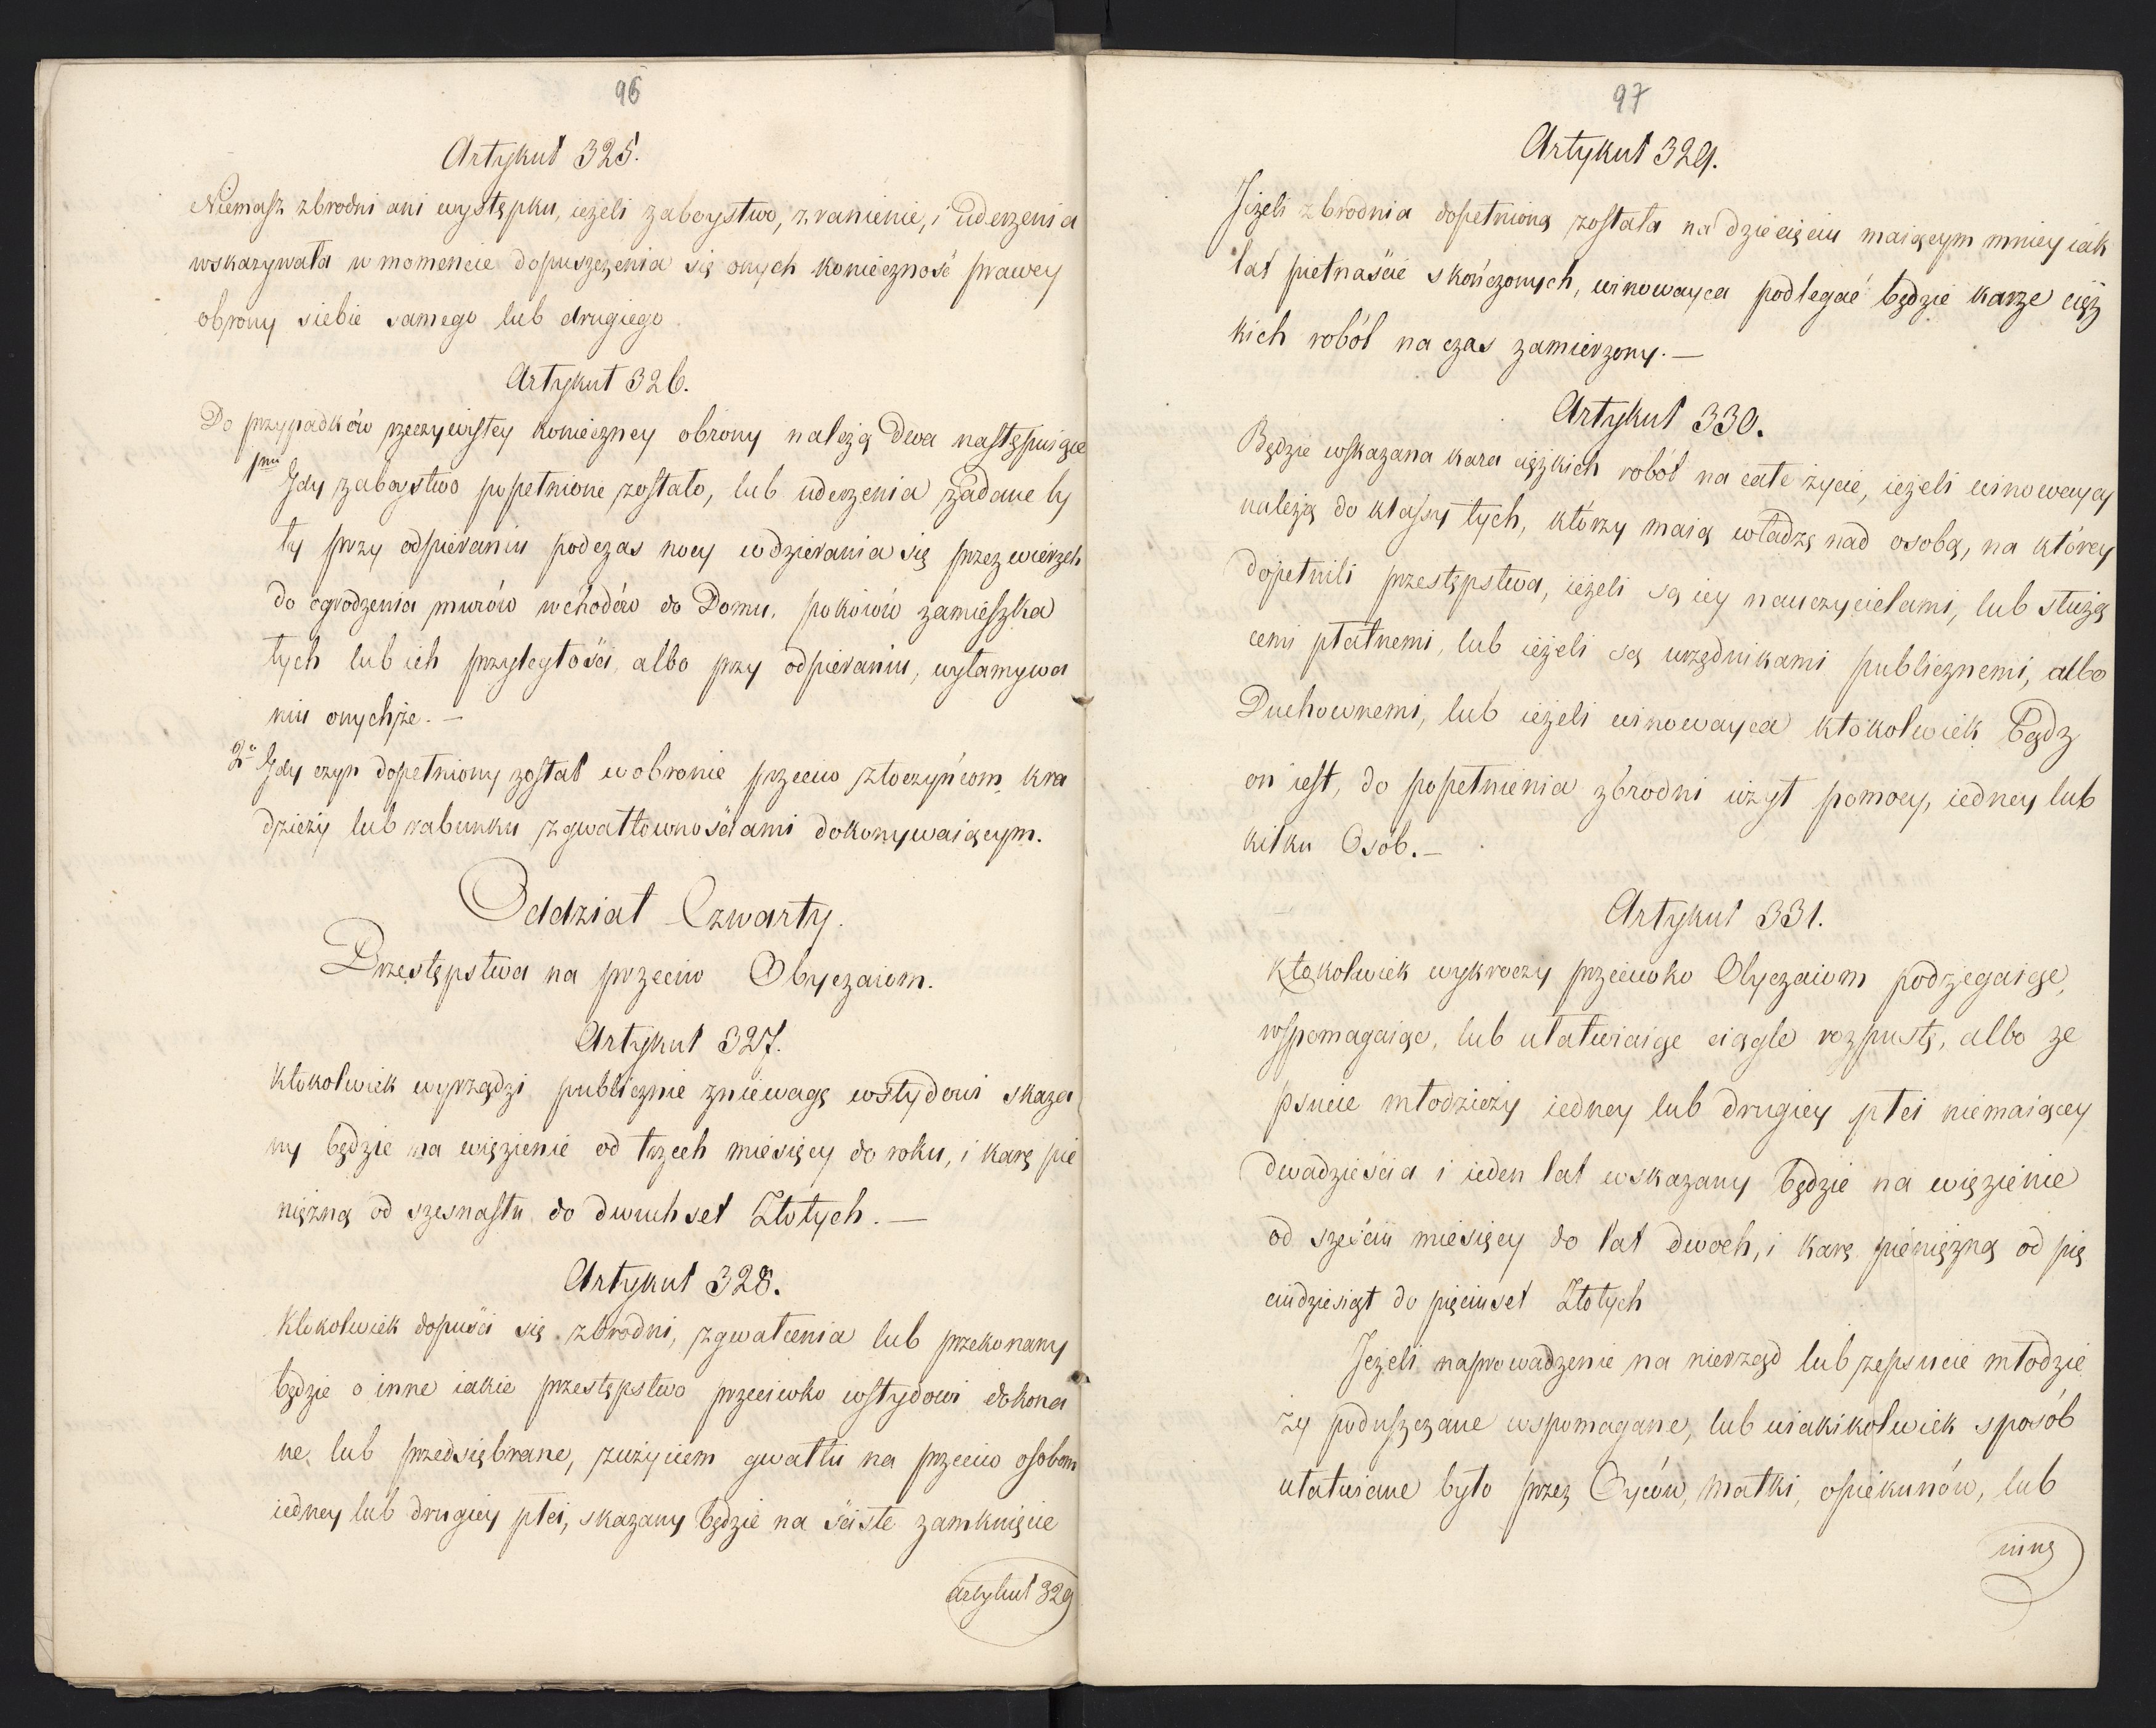 96
Artykuł 325.
Niemasz zbrodni ani występku, ieżeli zaboystwo, zranienie, i uderzenia
wskazywała w momencie dopuszczenia się onych konieczność prawey
obrony siebie samego lub drugiego
Artykuł 326.
Do przypadków rzeczywistey konieczney obrony należą Dwa następuiące
1mo Gdy zaboystwo popełnione zostało, lub uderzenia zadane by
ły przy odpieraniu podczas nocy wdzierania się przez wierzch
do ogrodzenia murów wchodów do Domu, pokoiów zamieszka
łych lub ich przyległości, albo przy odpieraniu, wyłamywa
niu onychże. —
2o Gdy czyn dopełniony został w obronie przeciw złoczyńcom, kra
dzieży lub rabunku z gwałtownościami dokonywaiącym.
Oddział Czwarty.
Przestępstwa na przeciw Obyczaiom.
Artykuł 327.
Ktokolwiek wyrządzi publicznie zniewagę wstydowi skaza
ny będzie na więzienie od trzech miesięcy do roku, i karę pie
niężną od szesnastu do dwuchset Złotych. —
Artykuł 328.
Ktokolwiek dopuści się zbrodni, zgwałcenia lub przekonany
będzie o inne iakie przestępstwo przeciwko wstydowi dokona
ne lub przedsiębrane, z użyciem gwałtu na przeciw osobom
iedney lub drugiey płci, skazany będzie na ściste zamknięcie
artykuł 329
97
Artykuł 329.
Jeżeli zbrodnia dopełnioną została na dziecięciu maiącym mniey iak
lat pietnaście skończonych, winowayca podlegać będzie karze cięż
kich robót na czas zamierzony. —
Artykuł 330.
Będzie wskazana kara ciężkich robót na całe życie, ieżeli winowaycy
należą do klassy tych, którzy maią władzę nad osobą, na którey
dopełnili przestępstwa, ieżeli są iey nauczycielami, lub służą
cemi płatnemi, lub ieżeli są urzędnikami publicznemi, albo
Duchownemi, lub ieżeli winowayca ktokolwiek bądz
on iest, do popełnienia zbrodni użył pomocy, iedney lub
kilku Osób. —
Artykuł 331.
Ktokolwiek wykroczy przeciwko Obyczaiom podżegaiąc,
wspomagaiąc, lub ułatwiaiąc ciągle rozpustę, albo ze
psucie młodzieży iedney lub drugiey płci niemaiącey
dwadzieścia i ieden lat wskazany będzie na więzienie
od sześciu miesięcy do lat dwoch, i karę pieniężną od pię
ciudziesiąt do pięciuset Złotych
Jeżeli naprowadzenie na nierząd lub zepsucie młodzie
ży poduszczane wspomagane, lub w iakikolwiek sposób
ułatwiane było przez Oyców, matki, opiekunów, lub
inne